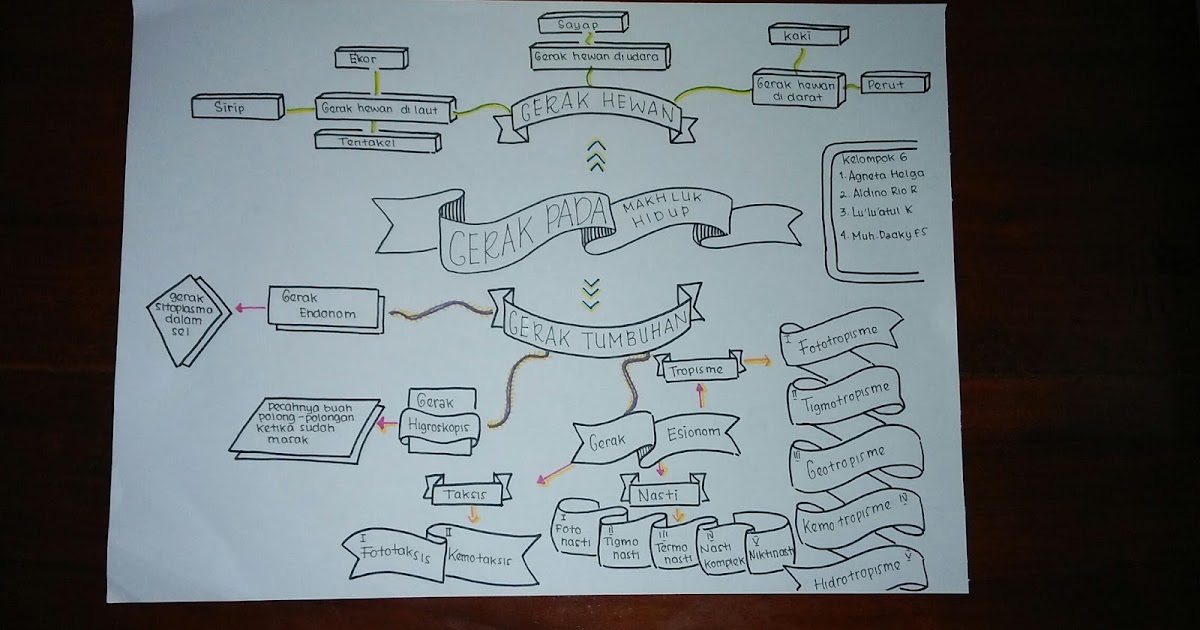 Sayap
Gerak hewan di udara
Kaki
Gerak hewan
di darat
Perut
Ekor
Sirip
Gerak hewan di laut
Tentakel
GERAK HEWAN
Kelompok 6
1. Agneta Helga
2. Aldino Rio R
3. Lu'lu'atul K
4. Muh. Dzaky FS
GERAK PADA
MAKHLUK
HIDUP
GERAK TUMBUHAN
Gerak
Endonom
gerak
sitoplasma
dalam
sel
Gerak
Higroskopis
Pecahnya buah
polong-polongan
ketika sudah
masak
Gerak Esionom
Tropisme
I Fototropisme
II Tigmotropisme
III Geotropisme
Kemotropisme IV
Hidrotropisme V
Taksis
I Fototaksis
II Kemotaksis
Nasti
I
Foto
nasti
II
Tigmo
nasti
III
Termo
nasti
IV
Nasti
Komplek
V
Niktinasti